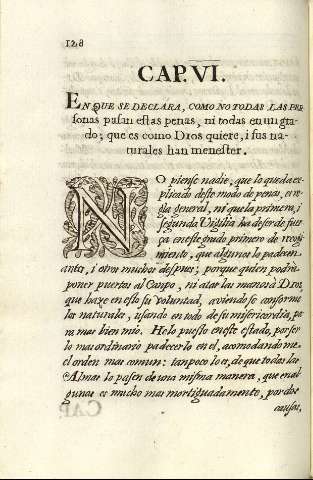 128
CAP. VI.
EN QUE SE DECLARA, COMO NO TODAS LAS PER
sonas pasan estas penas, ni todas en un gra
do; que es como Dios quiere, i sus na-
turales han menester.
NO piense nadie, que lo queda ex
plicado deste modo de penas, es re
gla general, ni que la primera, i
segunda Vigilia ha deser de fuer
ça en este grado primero de recogi
miento, que algunos lo padecen
antes, i otro muchos despues; porque quien podrà
poner puertas al Canpo, ni atar las manos à Dios,
que haze en esto su voluntad, aviendose conforme
la naturales, usando en todo de su misericordia, pa
ra mas bien mio. Helo puesto en este estado, por ser
lo mas ordinario padecerlo en el, acomodandome
el orden mas comun: tanpoco lo es, de que todas las
Almas lo pasen de una misma manera, que en al
gunas es mucho mas mortiguadamento, por dos
causas.